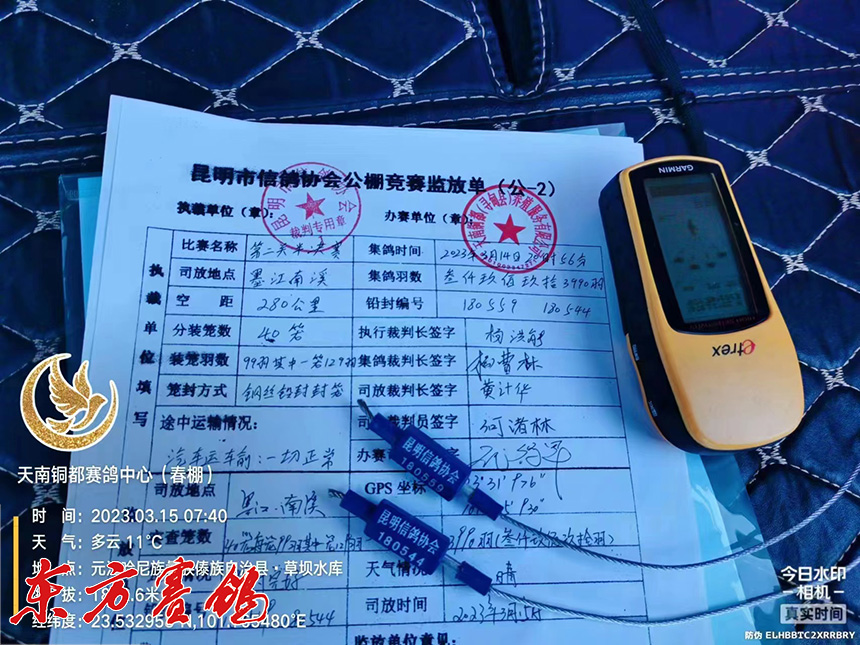 昆明市信鸽协会公棚竞赛监放单（公-2）
执裁单位（章）： 办赛单位（章）：
裁判专用章
执裁单位填写
比赛名称 第二关 决赛 集鸽时间 2023年3月14日 56分
司放地点 墨江南溪 集鸽羽数 叁仟玖佰玖拾 3990羽
空 距 280公里 铅封编号 180559 180544
分装笼数 40笼 执行裁判长签字
装笼羽数 99羽其中一笼129羽 集鸽裁判长签字
笼封方式 钢丝铅封封笼 司放裁判长签字 黄计华
途中运输情况： 司放裁判员签字 何渚林
汽车运输：一切正常 办赛
司放地点 墨江·南溪 GPS 坐标
查笼数 (叁仟玖佰玖拾羽)
天气情况 晴
544 司放时间
监放单位意见：
昆明信鸽协会
180559
昆明信鸽协会
180544
GARMIN
etrex
天南铜都赛鸽中心（春棚）
时 间：2023.03.15 07:40
天 气：多云 11℃
地 点：元江哈尼族 傣族自治县·草坝水库
拔：18 .6米
经纬度：23.532958°N,101. 5480°E
东方赛鸽
今日水印
相机
真实时间
防伪 ELHBBTC2XRRBRY